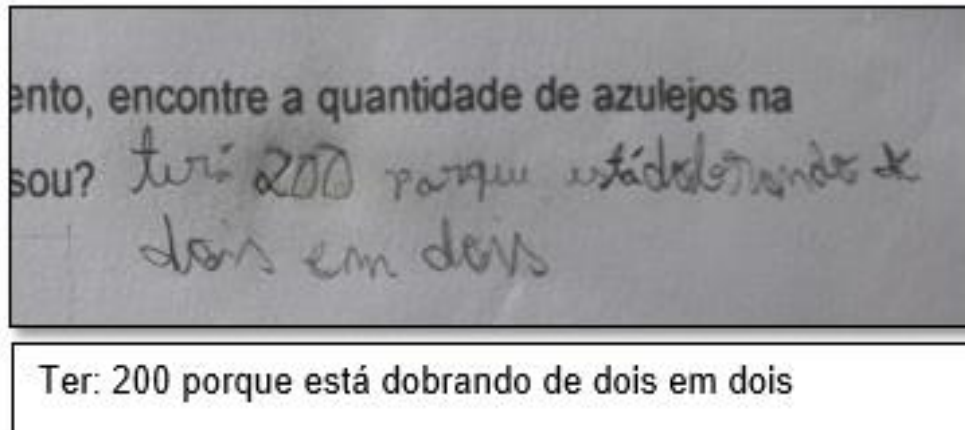 ento, encontre a quantidade de azulejos na
sou? terá 200 porque está dobrando de
dois em dois
Ter: 200 porque está dobrando de dois em dois